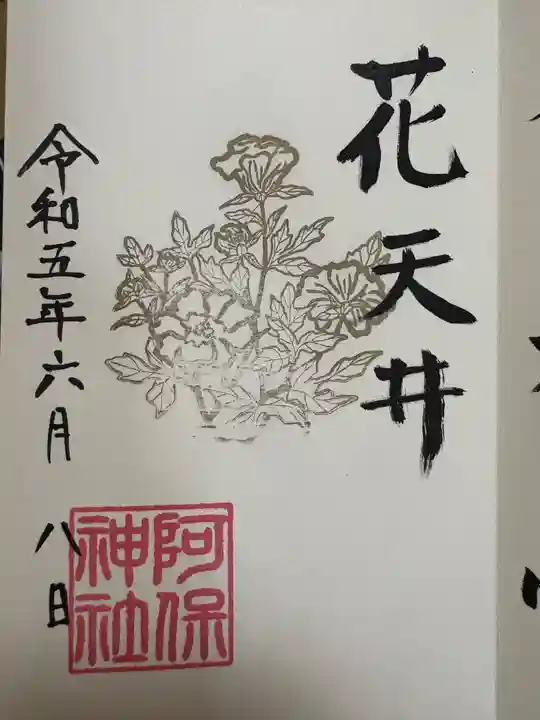 花天井
令和五年六月八日
阿保
神社